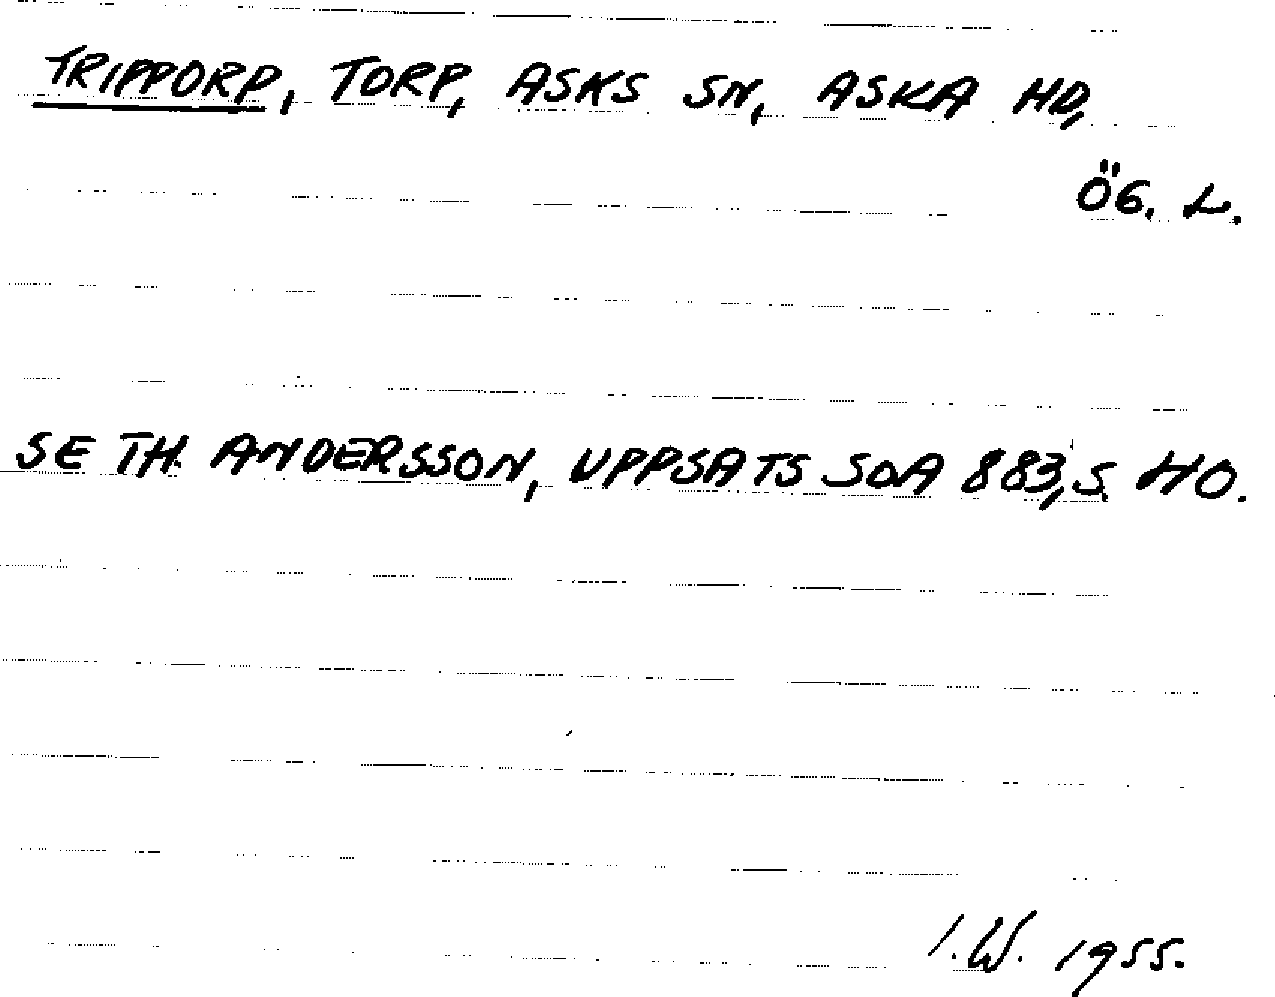 TRIPPORP, TORP, ASKS SN, ASKA HD,
ÖG. L.
SE TH. ANDERSSON, UPPSATS SOA 883, S. 40.
I.W. 1955.